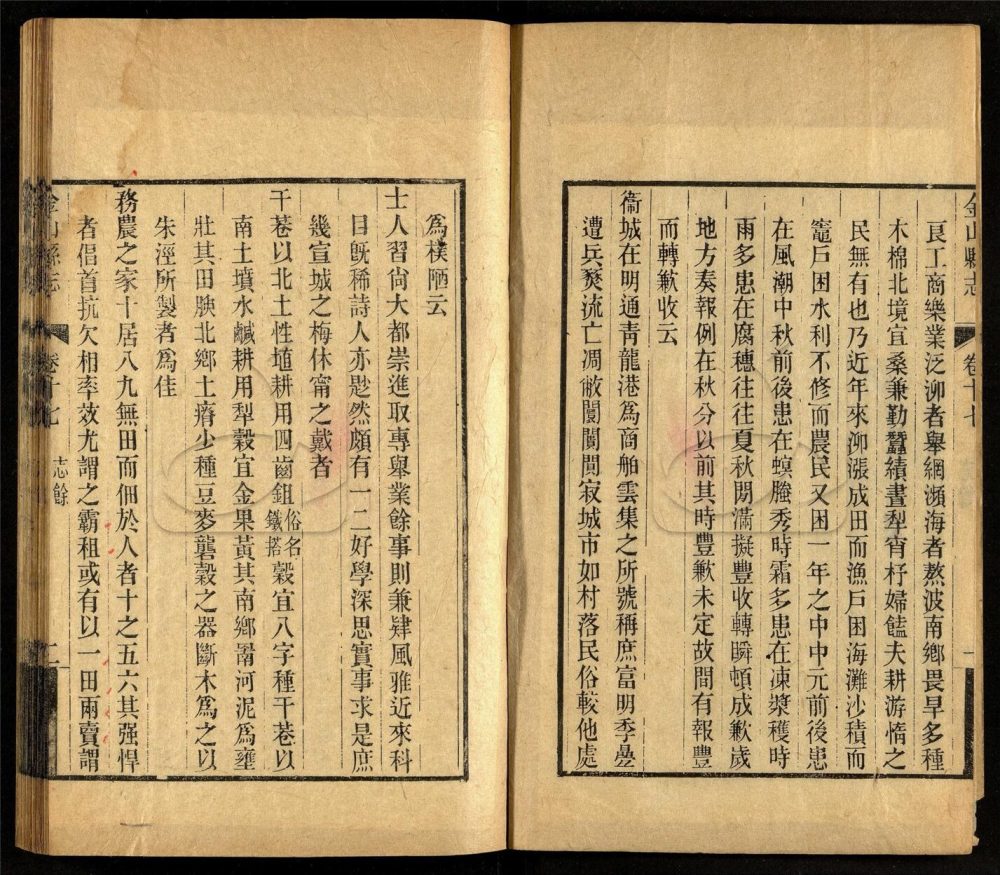 金山縣志 卷十七 一
良工商樂業泛泖者舉網瀕海者熬波南鄉畏旱多種
木棉北境宜桑兼勤蠶績晝犁宵杼婦饁夫耕游惰之
民無有也乃近年來泖漲成田而漁戶困海灘沙積而
竈戶困水利不修而農民又困一年之中中元前後患
在風潮中秋前後患在螟螣秀時霜多患在凍漿穫時
雨多患在腐穗往往夏秋閒滿擬豐收轉瞬頓成歉歲
地方奏報例在秋分以前其時豐歉未定故間有報豐
而轉歉收云
衞城在明通靑龍港爲商舶雲集之所號稱庶富明季疊
遭兵燹流亡凋敝闤闠闃寂城市如村落民俗較他處
爲樸陋云
士人習尙大都崇進取專舉業餘事則兼肄風雅近來科
目旣稀詩人亦尟然頗有一二好學深思實事求是庶
幾宣城之梅休甯之戴者
干巷以北土性埴耕用四齒鉏俗名鐵搭穀宜八字種干巷以
南土墳水鹹耕用犁穀宜金果黃其南鄉罱河泥爲壅
壯其田腴北鄉土瘠少種豆麥礱穀之器斷木爲之以
朱涇所製者爲佳
務農之家十居八九無田而佃於人者十之五六其强悍
者倡首抗欠相率效尤謂之霸租或有以一田兩賣謂
金山縣志 卷十七 志餘 二